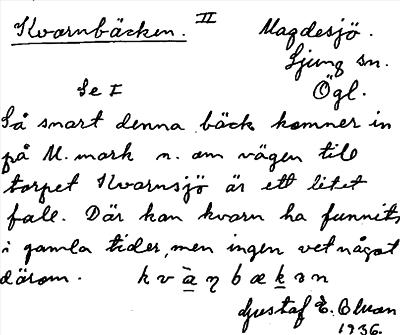 Kvarnbäcken. II Magdesjö.
Ljung sn.
Ögl.
Se I
Så snart denna bäck kommer in
på M. mark n. om vägen till
torpet Kvarnsjö är ett litet
fall. Där kan kvarn ha funnits
i gamla tider, men ingen vet något
därom. kvàɳbækən
Gustaf E.
1936.